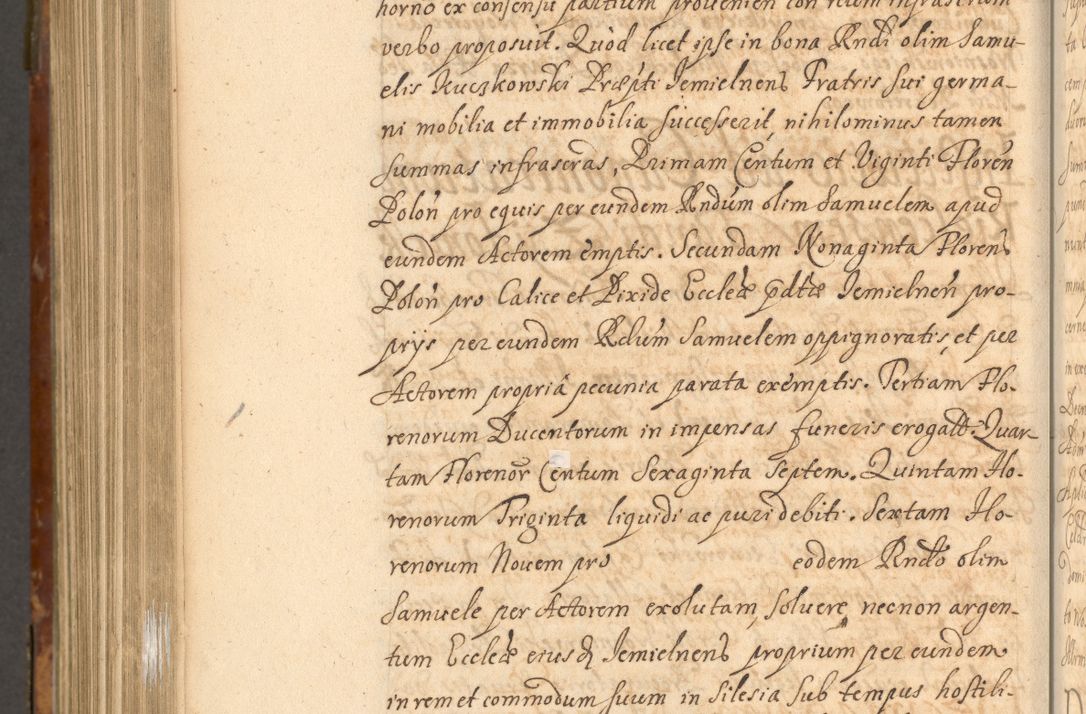 horno ex consensu partium provenien con reum infrascriptum
verbo proposuit. Quod licet ipse in bona Rndi olim Samu-
elis Kuczkowski Præpti Jemielnens Fratris sui germa-
ni mobilia et immobilia successerit, nihilominus tamen
summas infrascras, Primam Centum et Viginti Floren
Polon pro equis per eundem Rndum olim Samuelem apud
eundem Actorem emptis. Secundam Nonaginta Florens
Polon pro Calice et Pixide Eccleæ pdtæ Jemielnen pro-
prijs per eundem Rdum Samuelem oppignoratis, et per
Actorem propriâ pecunia parata exemptis. Tertiam Flo-
renorum Ducentorum in impensas funeris erogatt. Quar-
tam Florenor Centum Sexaginta Septem. Quintam Flo-
renorum Triginta liquidi ac puri debiti. Sextam Flo-
renorum Novem pro eodem Rndo olim
Samuele per Actorem exolutam, solvere, necnon argen-
tum Eccleæ eiusdq Jemielnens proprium per eundem
in rem et commodum suum in Silesia sub tempus hostili-